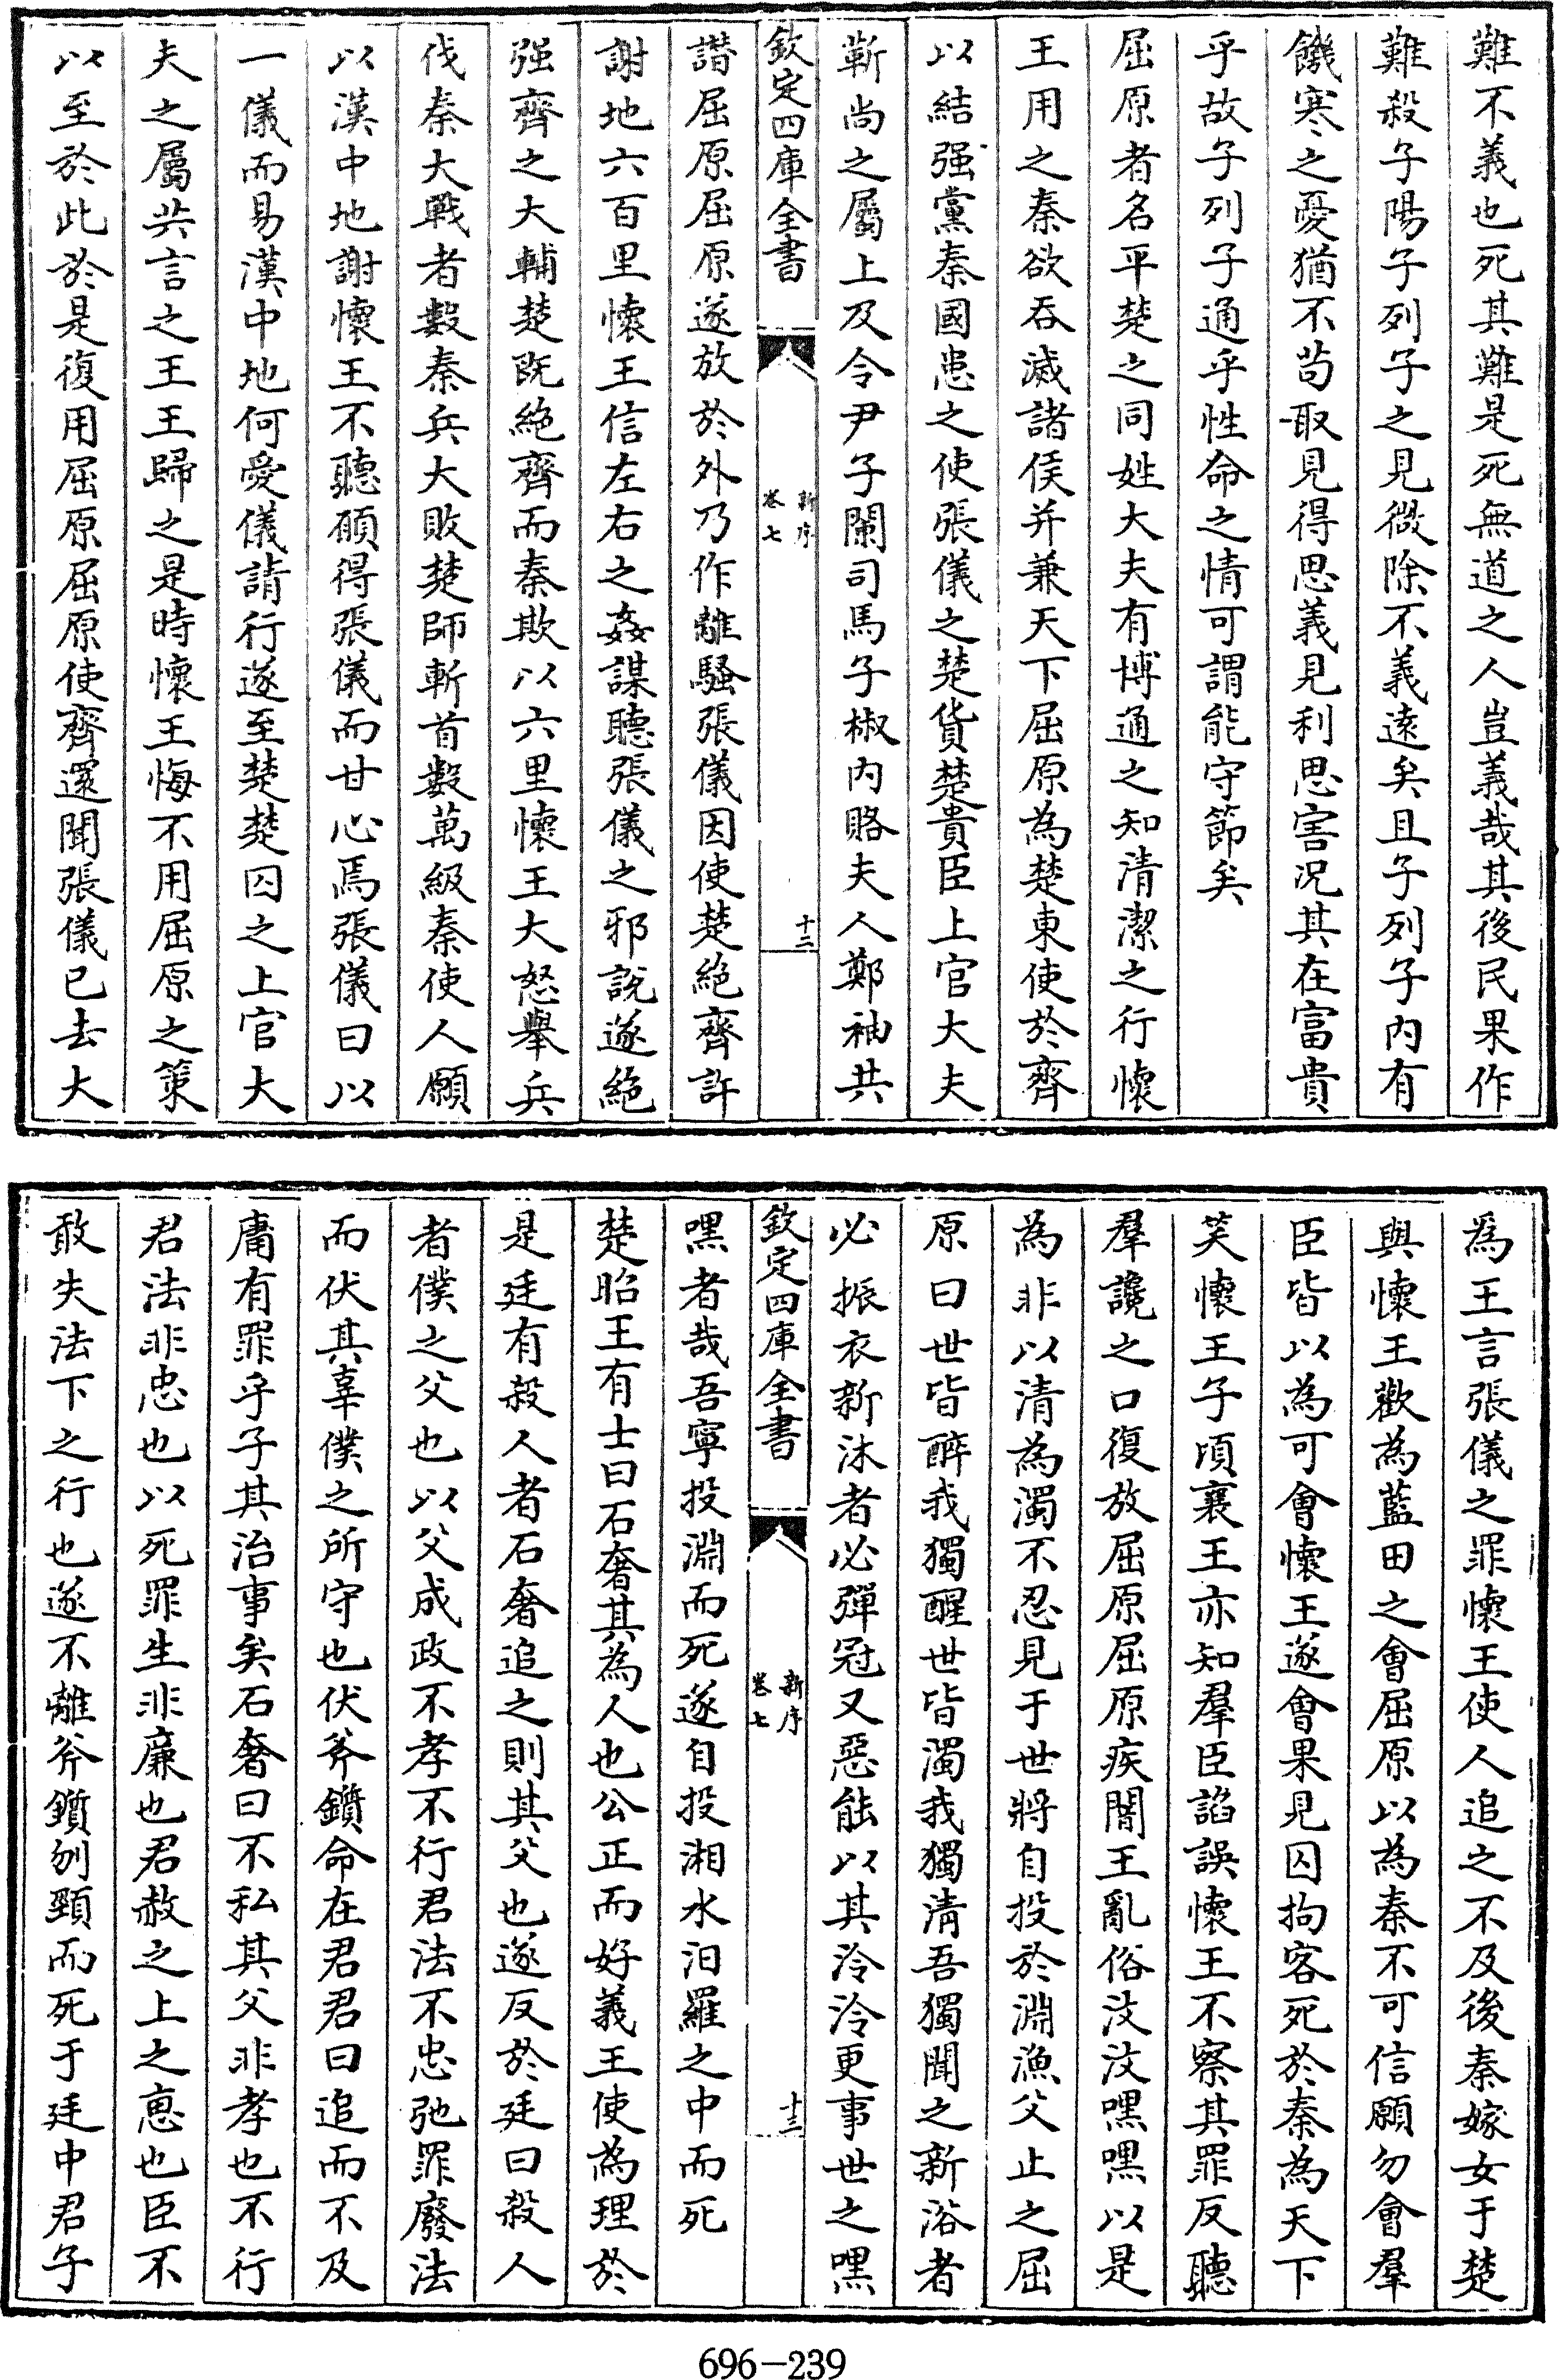 難不義也死其難是死無道之人豈義哉其後民果作
難殺子陽子列子之見微除不義遠矣且子列子內有
饑寒之憂猶不茍取見得思義見利思害況其在富貴
乎故子列子通乎性命之情可謂能守節矣
屈原者名平楚之同姓大夫有博通之知清潔之行懷
王用之秦欲吞滅諸侯并兼天下屈原為楚東使於齊
以結强黨秦國患之使張儀之楚貨楚貴臣上官大夫
靳尚之屬上及令尹子闌司馬子椒內賂夫人鄭袖共
欽定四庫全書
新序
卷七
十二
譖屈原屈原遂放於外乃作離騷張儀因使楚絶齊許
謝地六百里懷王信左右之姦謀聽張儀之邪說遂絶
强齊之大輔楚既絶齊而秦欺以六里懷王大怒舉兵
伐秦大戰者數秦兵大敗楚師斬首數萬級秦使人願
以漢中地謝懷王不聽願得張儀而甘心焉張儀曰以
一儀而易漢中地何愛儀請行遂至楚楚囚之上官大
夫之屬共言之王王歸之是時懷王悔不用屈原之策
以至於此於是復用屈原屈原使齊還聞張儀已去大
為王言張儀之罪懷王使人追之不及後秦嫁女于楚
與懷王歡為藍田之會屈原以為秦不可信願勿會羣
臣皆以為可會懷王遂會果見囚拘客死於秦為天下
笑懷王子頃襄王亦知羣臣諂誤懷王不察其罪反聽
羣讒之口復放屈原屈原疾闇王亂俗汶汶嘿嘿以是
為非以清為濁不忍見于世將自投於淵漁父止之屈
原曰世皆醉我獨醒世皆濁我獨清吾獨聞之新浴者
必振衣新沐者必彈冠又惡能以其泠泠更事世之嘿
欽定四庫全書
新序
卷七
十三
嘿者哉吾寧投淵而死遂自投湘水汨羅之中而死
楚昭王有士曰石奢其為人也公正而好義王使為理於
是廷有殺人者石奢追之則其父也遂反於廷曰殺人
者僕之父也以父成政不孝不行君法不忠弛罪廢法
而伏其辜僕之所守也伏斧鑕命在君君曰追而不及
庸有罪乎子其治事矣石奢曰不私其父非孝也不行
君法非忠也以死罪生非廉也君赦之上之恵也臣不
敢失法下之行也遂不離斧鑕刎頸而死于廷中君子
696-239